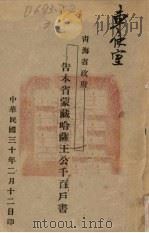 東使室
青海省政府
告本省蒙藏哈薩王公千百戶書
中華民國三十年二月十二日印